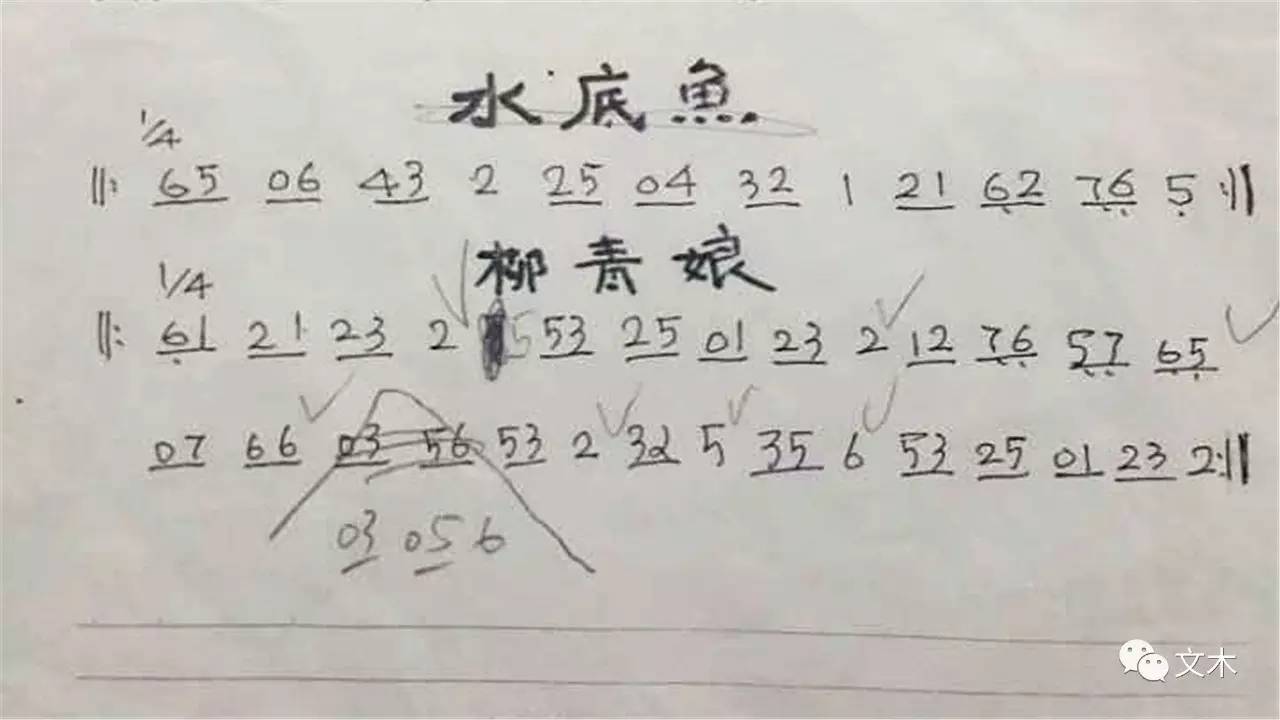 水底魚
1/4
‖: 65 06 43 2 25 04 32 1 21 62 76 5 :‖
柳青娘
1/4
‖: 61 21 23 2 5 53 25 01 23 2 12 76 57 65
07 66 03 56 53 2 32 5 35 6 53 25 01 23 2 :‖
03 05 6
文木